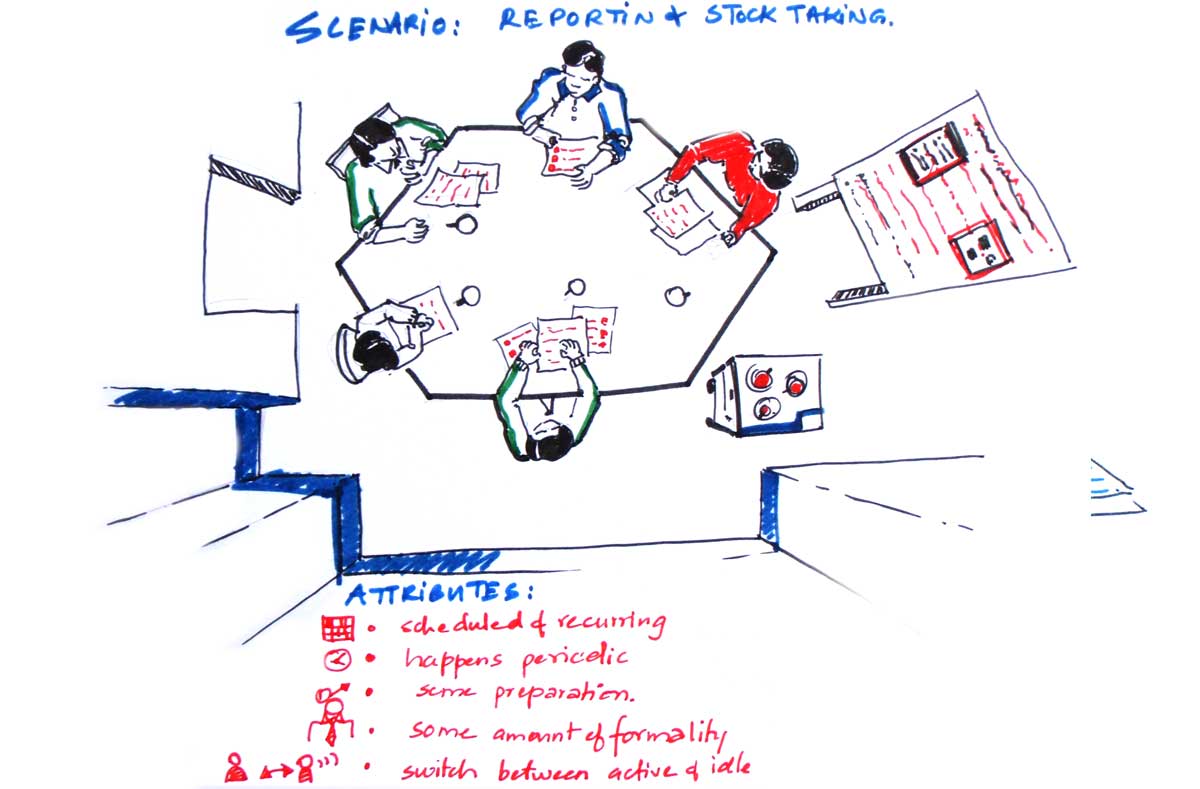 SCENARIO: REPORTIN & STOCK TAKING.
ATTRIBUTES:
• scheduled & recurring
• happens periodic
• some preparation.
• some amount of formality
• switch between active & idle